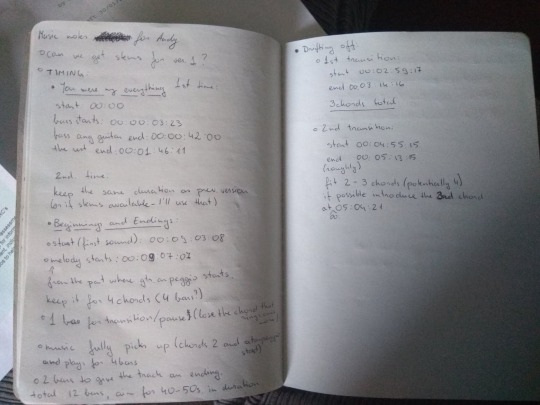 Music notes for Andy
○ can we get stems for ver 1?
○ TIMING
• You were my everything 1st time:
start 00:00
bass starts: 00:00:03:23
bass and guitar end: 00:00:42:00
the rest end: 00:01:46:11
2nd time:
keep the same duration as prev. version
(or if stems available - I'll use that)
• Beginnings and Endings:
○ start (first sound): 00:03:03:08
○ melody starts: 00:03:07:07
from the part where arpeggio starts.
keep it for 4 chords (4 bars?)
○ 1 bar for transition/pause (lose the chord that
○ music fully picks up (chords 2 and arpeggio
and plays for 4 bars start)
○ 2 bars to give the track an ending.
total 12 bars, aim for 40-50s in duration
• Drifting off
○ 1st transition:
start 00:02:59:17
end 00:03:14:16
3 chords total
○ 2nd transition:
start 00:04:55:15
end 00:05:13:15
(roughly)
fit 2-3 chords (potentially 4)
if possible introduce the 3rd chord
at 05:04:21